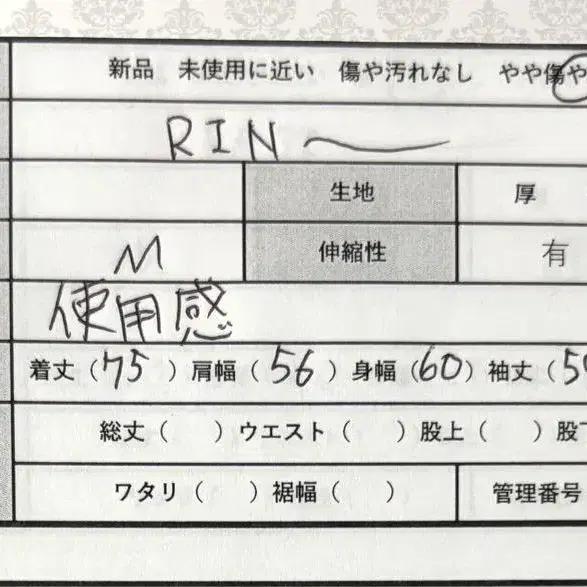 新品 未使用に近い 傷や汚れなし やや傷や
RIN
生地 厚
M 伸縮性 有
使用感
着丈（75）肩幅（56）身幅（60）袖丈（5
総丈（ ）ウエスト（ ）股上（ ）股下
ワタリ（ ）裾幅（ ） 管理番号